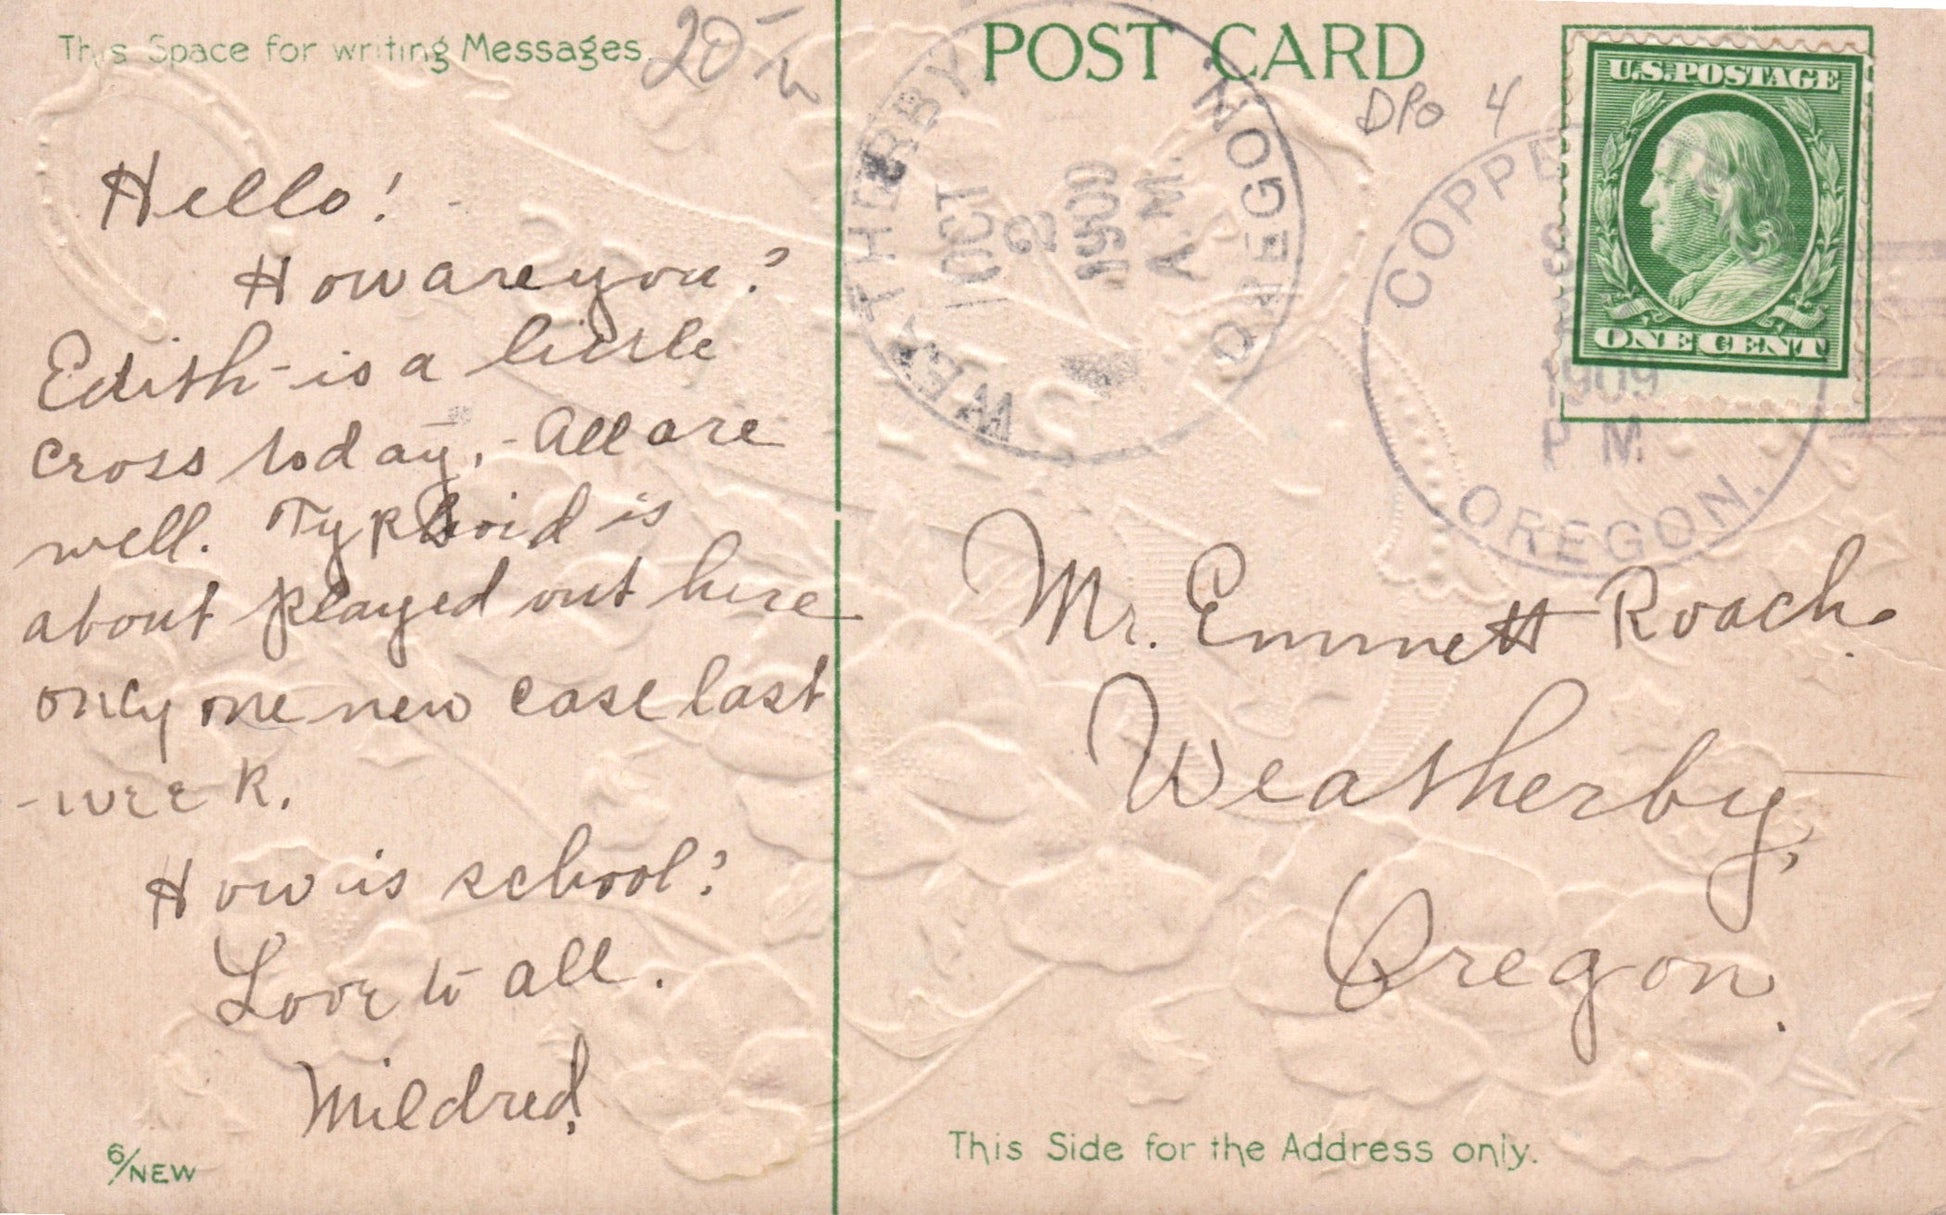 This Space for writing Messages.
20
Hello!
How are you?
Edith is a little
cross today. - All are
well. Typhoid is
about played out here
only one new case last
- week.
How is school?
Love to all.
Mildred.
6/NEW
POST CARD
DPO 4
WEATHERBY
OREGON
OCT
2
1909
A.M.
U.S. POSTAGE
ONE CENT
1909
P M
OREGON.
Mr. Emmett Roach.
Weatherby,
Oregon.
This Side for the Address only.